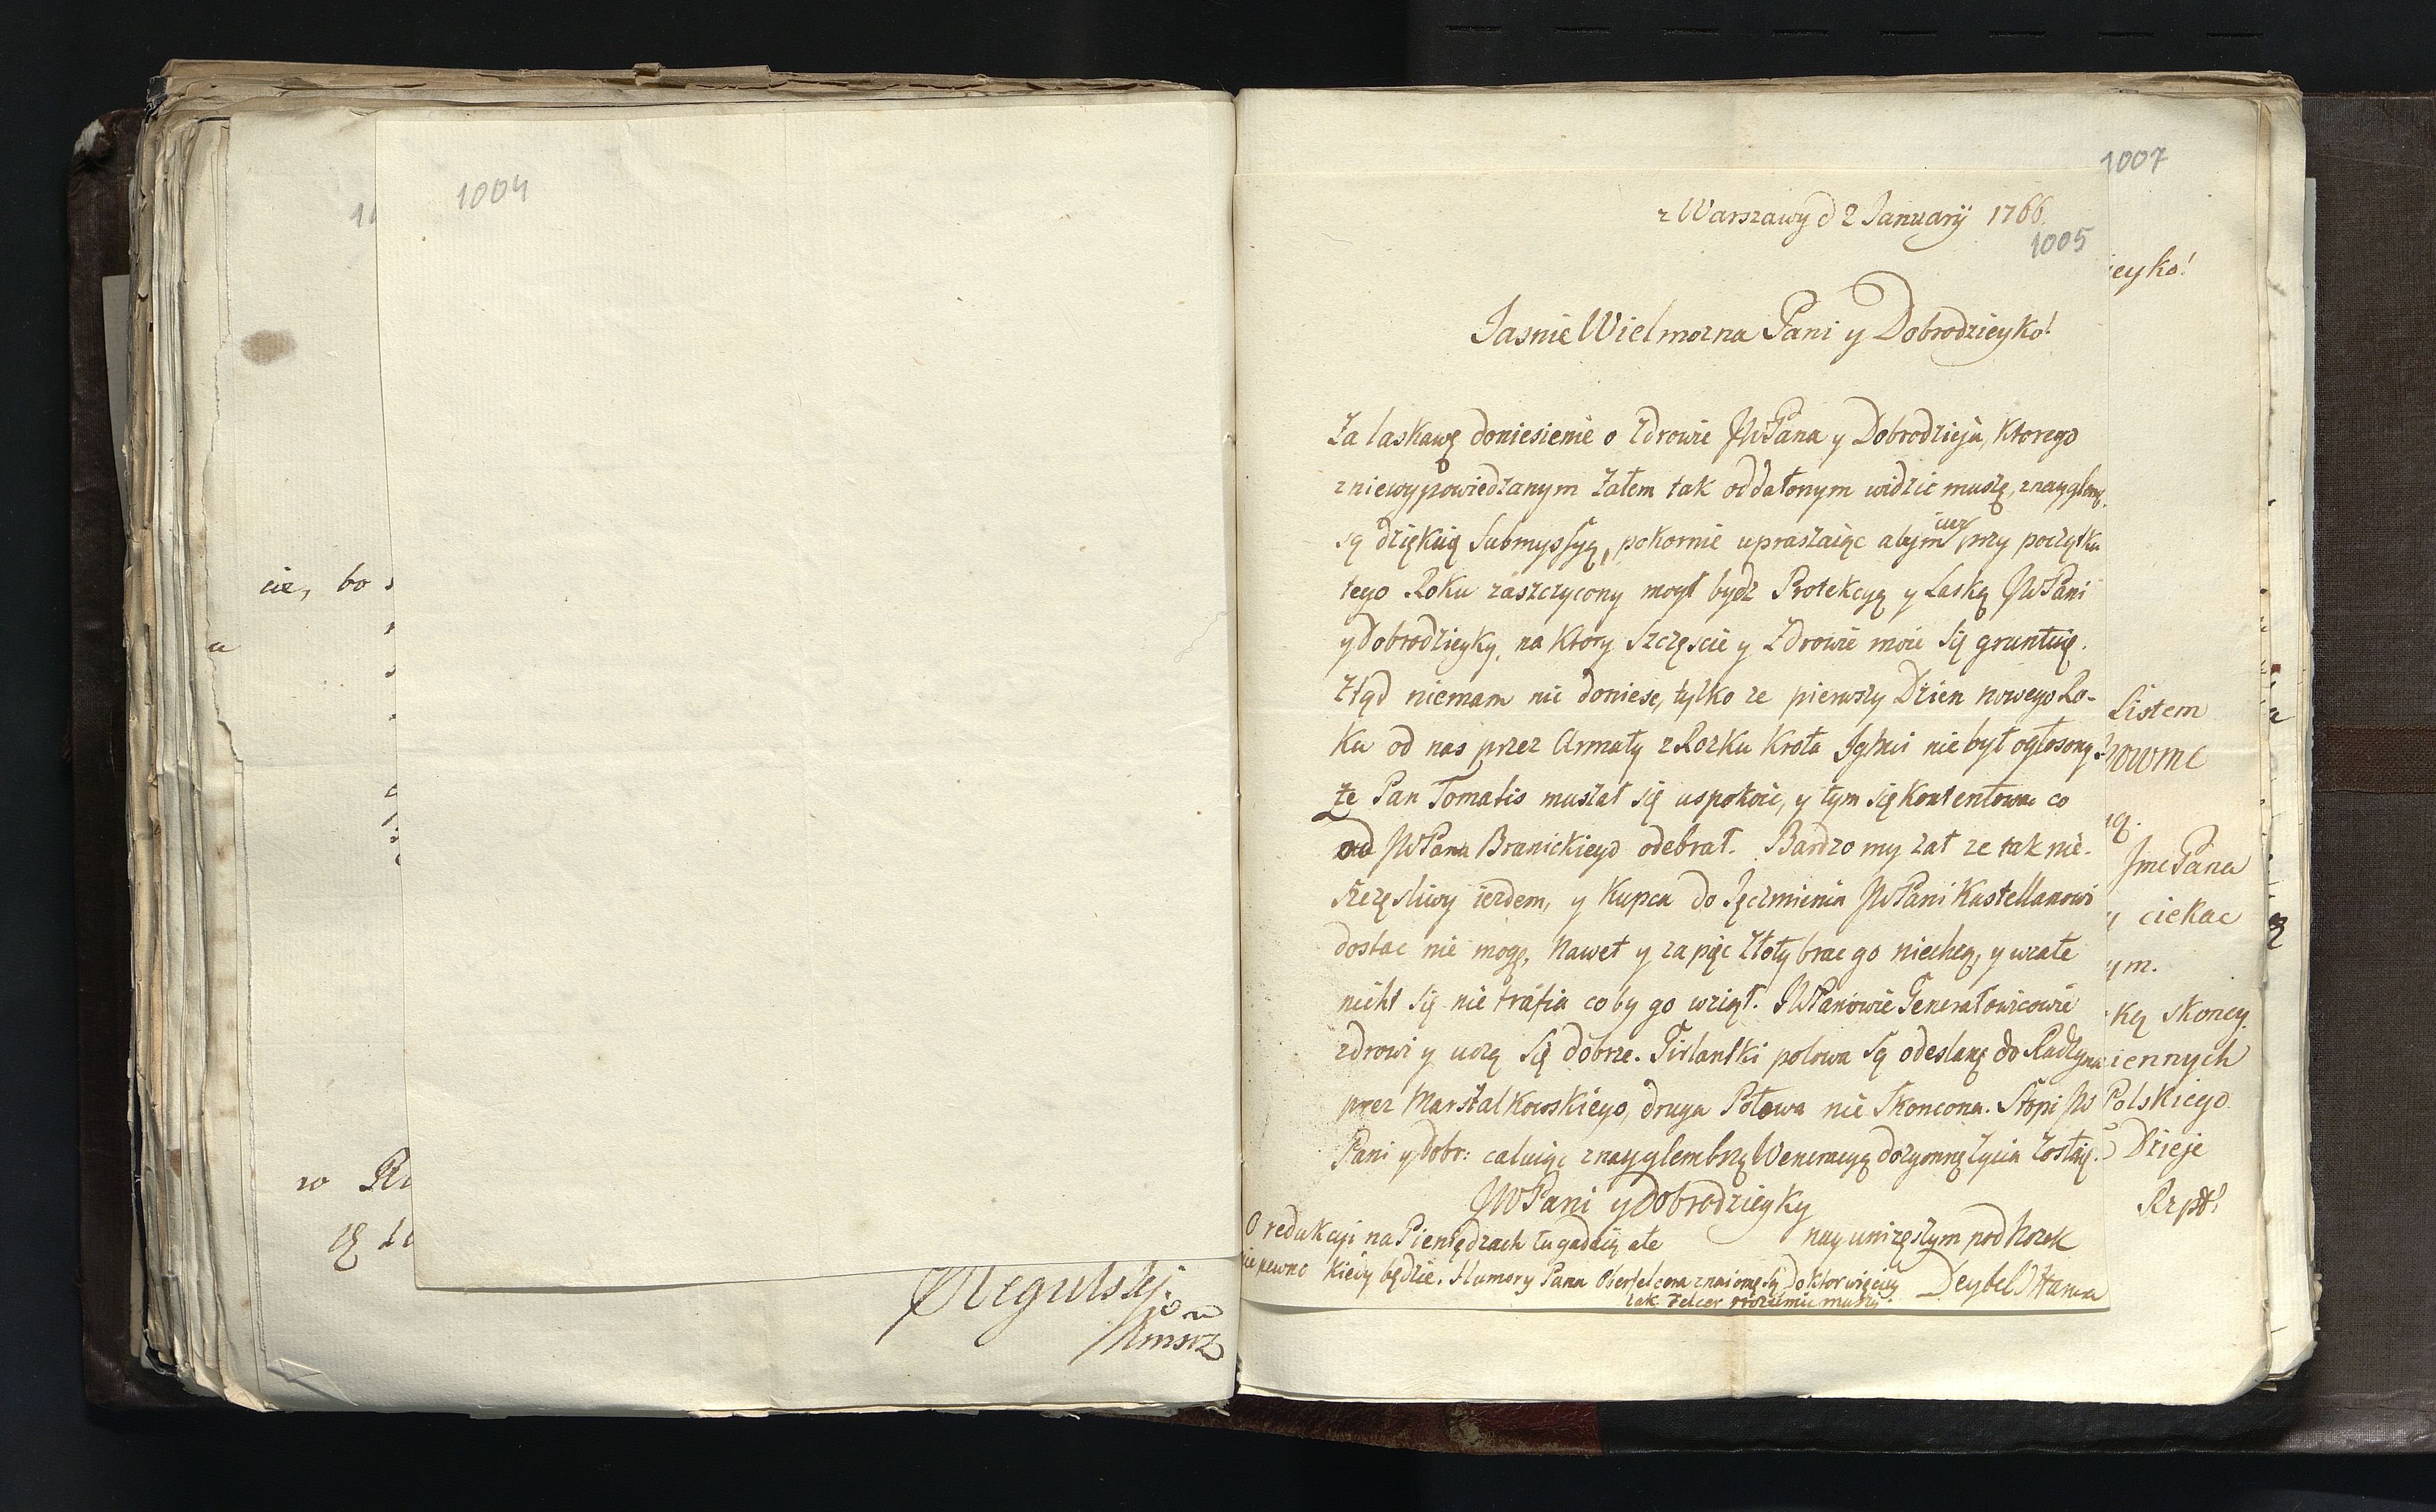 1004
cie, bo
a
w
Regulskj.
z Warszawy d 2 Januarij 1766.
1005
1007
Jasnie Wielmozna Pani y Dobrodzieyko!
eyko!
Za laskawę doniesienie o Zdrowie JWPana y Dobrodzieja, Ktorego
z niewypowiedzanym Zalem tak oddalonym widzic muszę, znayglemp.
sę dziękuię Submyssyą, pokornie upraszaięc abym iuz przy poczętku
tego Roku zaszczycony mogł bydz Protekcyą y Laskę JWPani
y Dobrodzieyky, na Ktory Szczęscie y Zdrowie moie Się gruntuię.
Ztąd niemam nic doniesc, tylko ze pierwszy Dzien nowego Ro-
Ku od nas przez Armaty z Rozku Krola JgMci nie był ogłosony
ze Pan Tomatis musial się uspokoic, y tym się Kontentowac co
od JWPana Branickiego odebrał. Bardzo my zal ze tak nie-
szczęsliwy iezdem, y Kupca do Jęczmienia JWPani Kastellanowi
dostac nie mogę, Nawet y za pięc Złoty brac go niechcą, y wcale
nicht Się nie trafia co by go wzięł. JWPanowie Generałowicowie
zdrowi y uczę Się dobrze. Girlantki polowa Są odeslanę do Radzyna
przez Marszalkowskiego, druga Połowa nie Skoncona. Stopi JW
Pani y Dobr: caluięc z nayglembszą Weneracyą dozgonnę Zycia Zostaię.
JWPani y Dobrodzieyky
nayunizęszym podnozek
Deybel Hama
O redukcyi na Pieniędzach tu gadaię ale
nie pewno Kiedy będzie. Humory Pana Oberfelcera znaiome Są Doktor więcey
iak Felcer rozumie muszy.
Listem
Jmc Pana
ciekac
ym.
skoncy
iennych
Polskiego
Dzieje